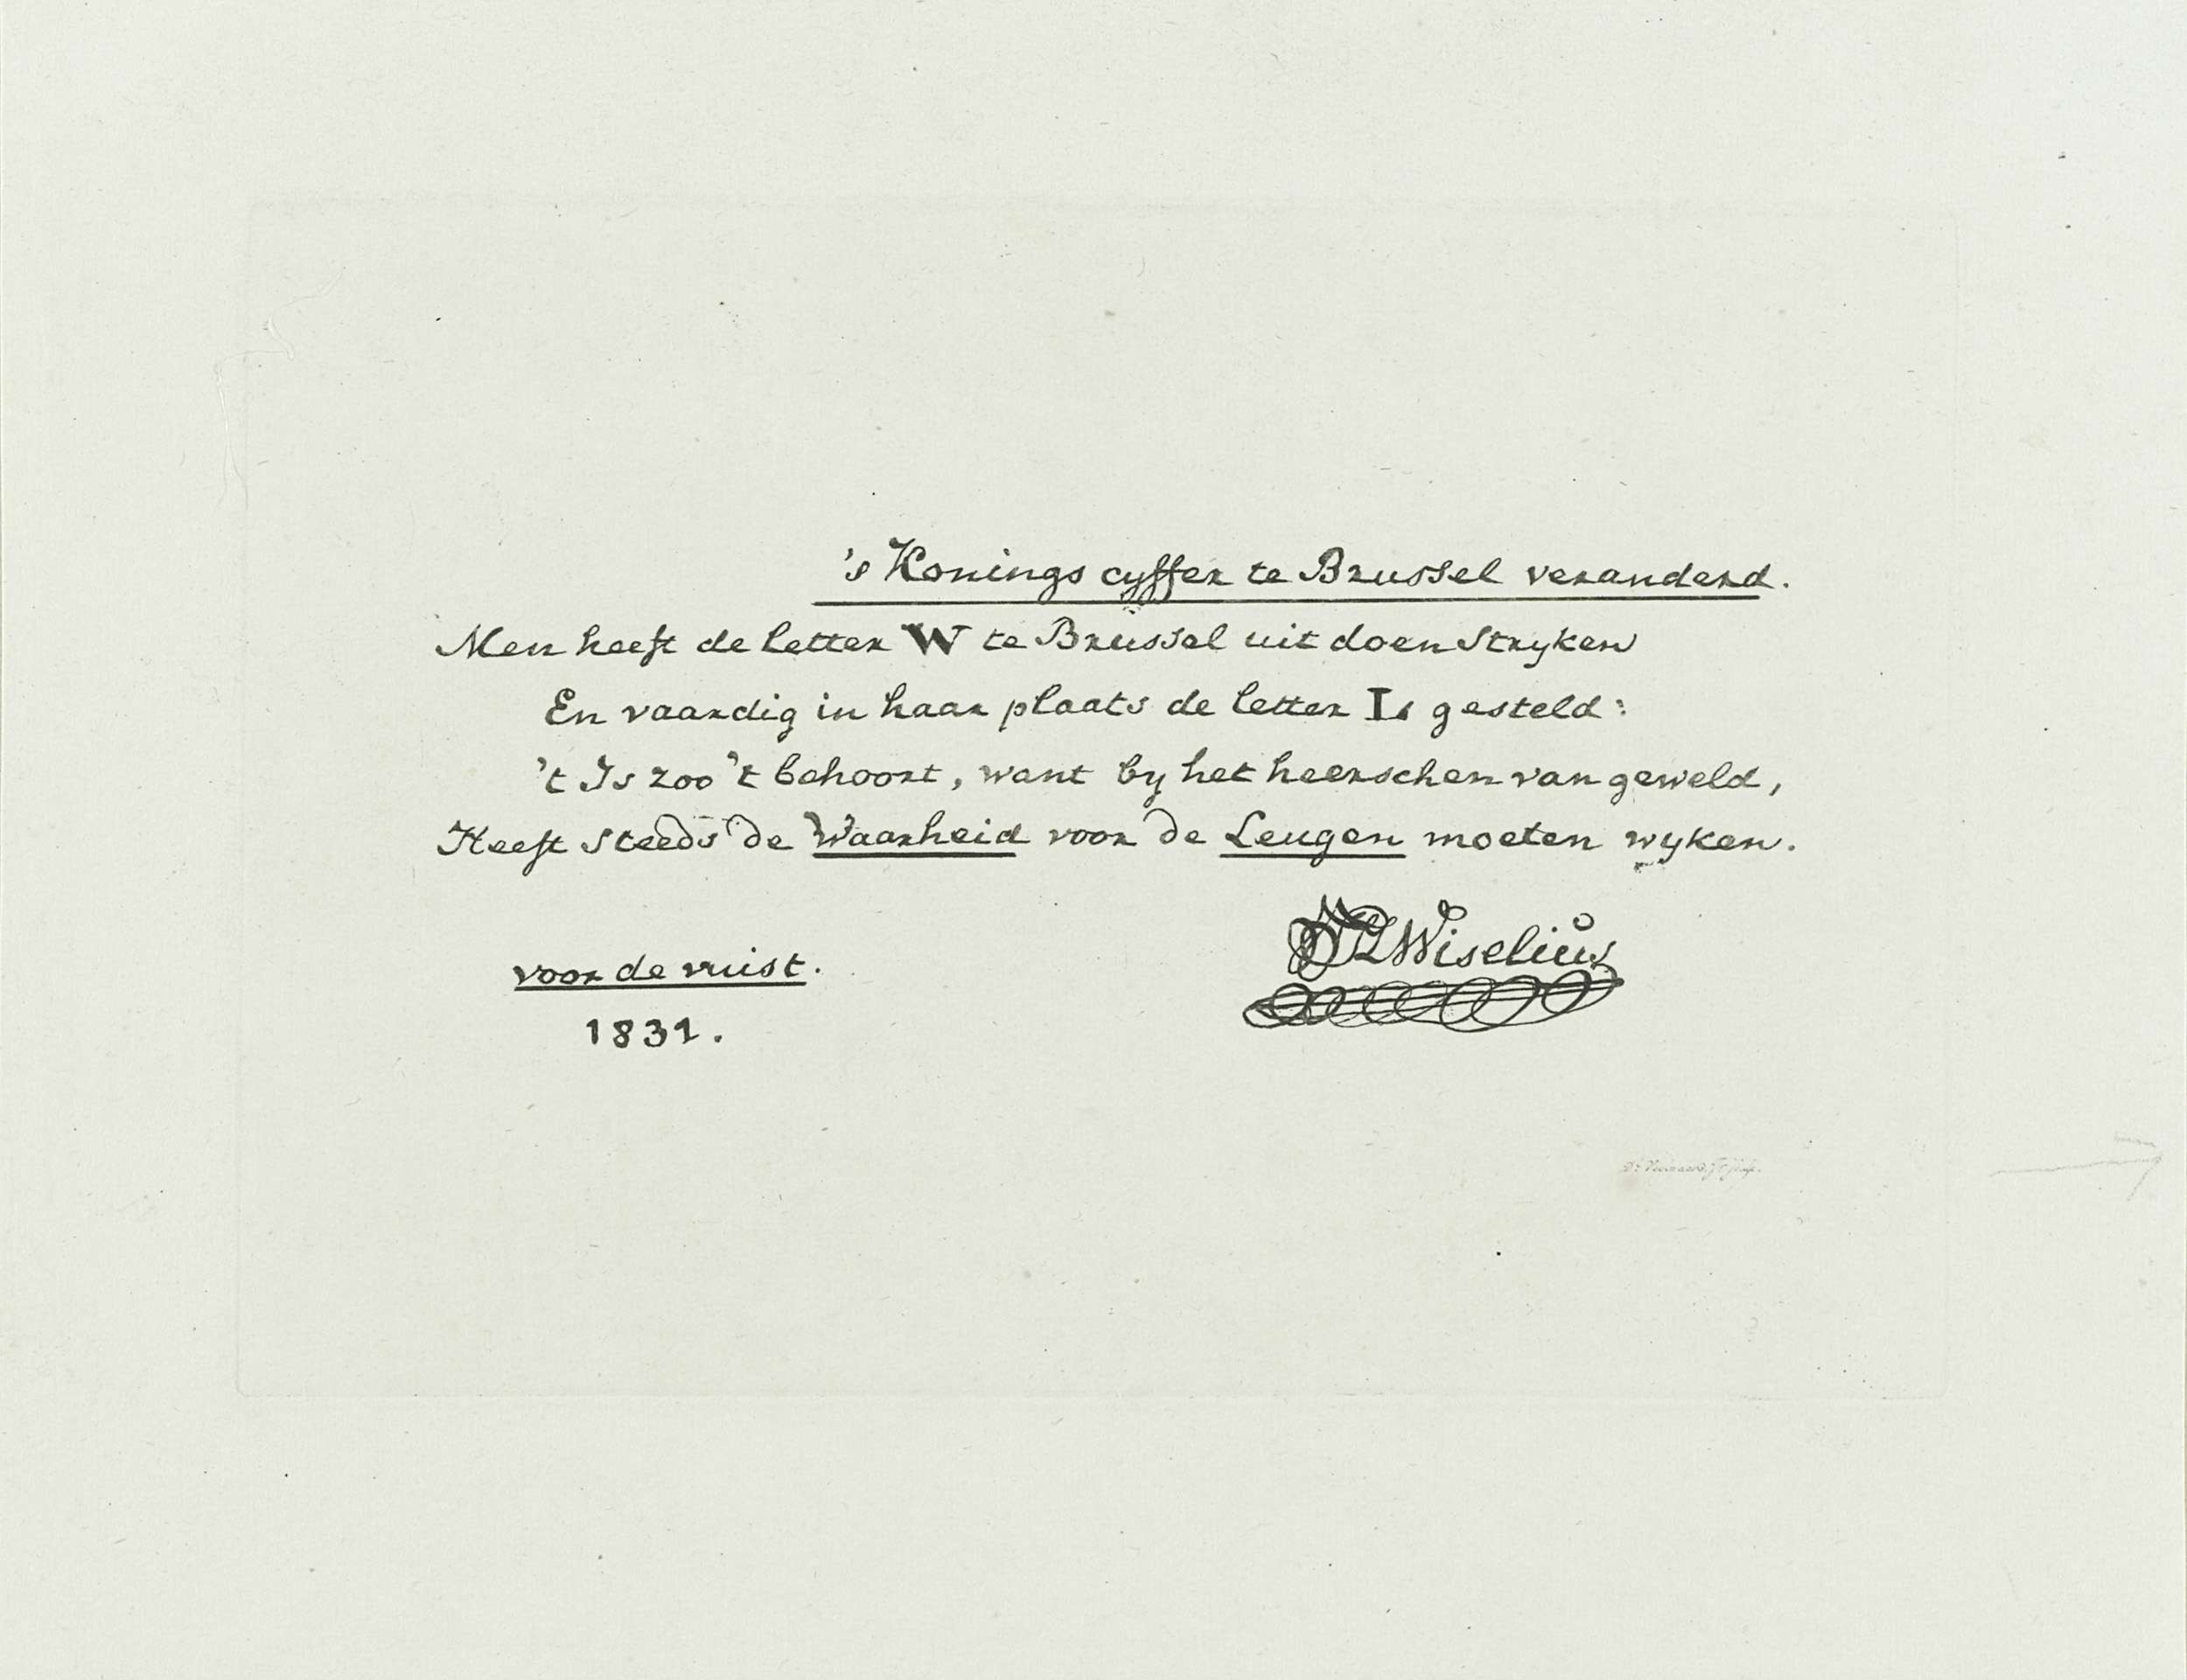 's Konings cyffer te Brussel veranderd.
Men heeft de letter W te Brussel uit doen stryken
En vaardig in haar plaats de letter L gesteld:
't Is zoo 't behoort, want by het heerschen van geweld,
Heeft steeds de Waarheid voor de Leugen moeten wyken.
voor de vuist.
1831.
Wiselius